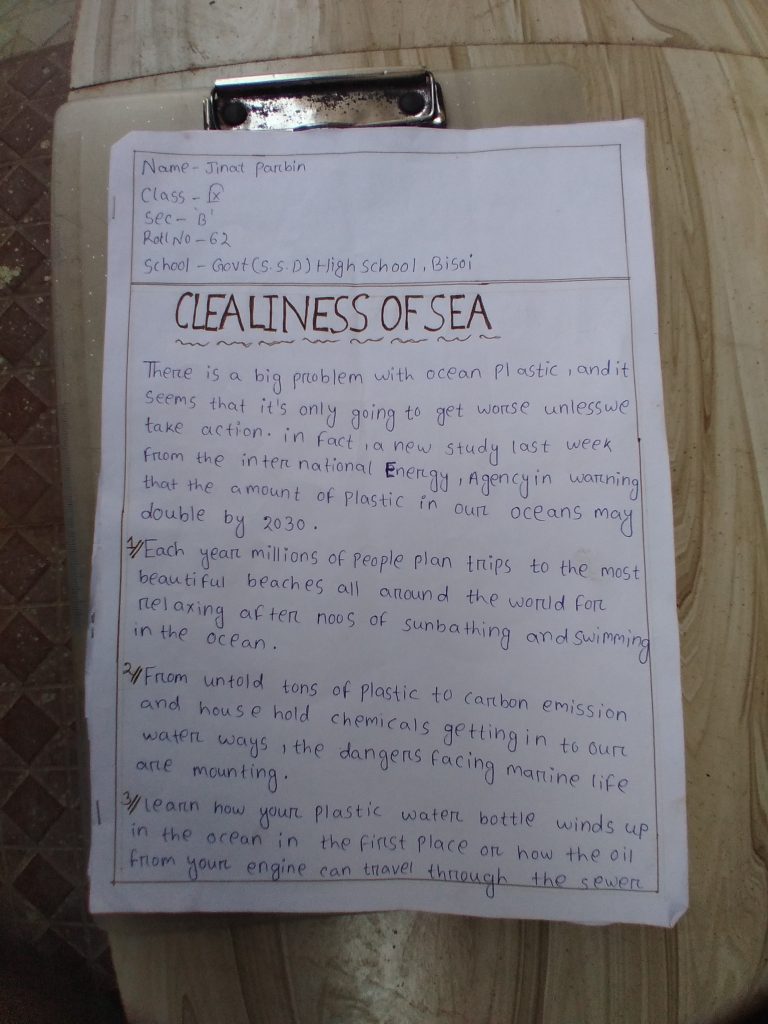 Name - Jinat Parbin
Class - IX
Sec - 'B'
Roll No - 62
School - Govt (S.S.D) High School, Bisoi
CLEALINESS OF SEA
There is a big problem with ocean plastic, and it
seems that it's only going to get worse unless we
take action. in fact, a new study last week
from the inter national Energy, Agency in warning
that the amount of plastic in our oceans may
double by 2030.
1// Each year millions of people plan trips to the most
beautiful beaches all around the world for
relaxing after noos of sunbathing and swimming
in the ocean.
2// From untold tons of plastic to carbon emission
and house hold chemicals getting in to our
water ways, the dangers facing marine life
are mounting.
3// Learn how your plastic water bottle winds up
in the ocean in the first place or how the oil
from your engine can travel through the sewer